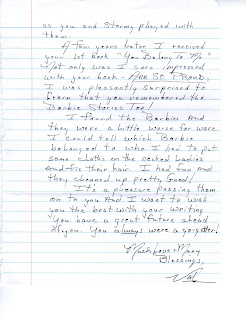 as you and Stormy played with
them.
A few years later I received
your 1st book "You Belong To Me"
Not only was I sore impressed
with your book - AND SO PROUD,
I was pleasantly surprised to
learn that you remembered the
Barbie Stories Too!
I found the Barbies And
they were a little worse for ware.
I could tell which Barbie
belonged to who. I had to put
some cloths on the necked Ladies
And fix their hair. I had fun and
they cleaned up pretty Good!
It's a pleasure passing them
on to you And I want to wish
you the best with your writing
You have a great future ahead
of you. You always were a go-getter!
Much Love & Many
Blessings,